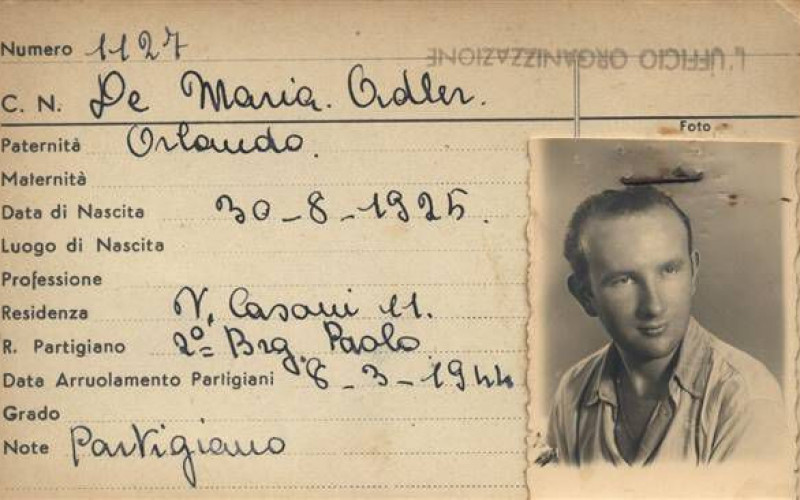 Numero 1127
L'UFFICIO ORGANIZZAZIONE
C. N. De Maria. Adler.
Foto
Paternità Orlando.
Maternità
Data di Nascita 30-8-1925.
Luogo di Nascita
Professione
Residenza V. Casoni 11.
R. Partigiano 2º= Brg. Paolo
Data Arruolamento Partigiani 8-3-1944
Grado
Note Partigiano